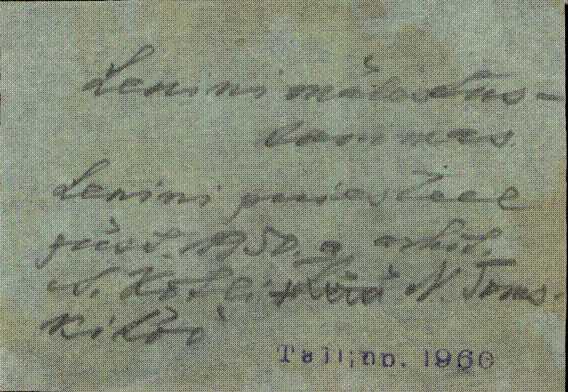 Lenini mälestus-
sammas
Lenini puiesteel
püst. 1950. a. arhit.
N. Toms-
ki töö
Tallinn. 1960